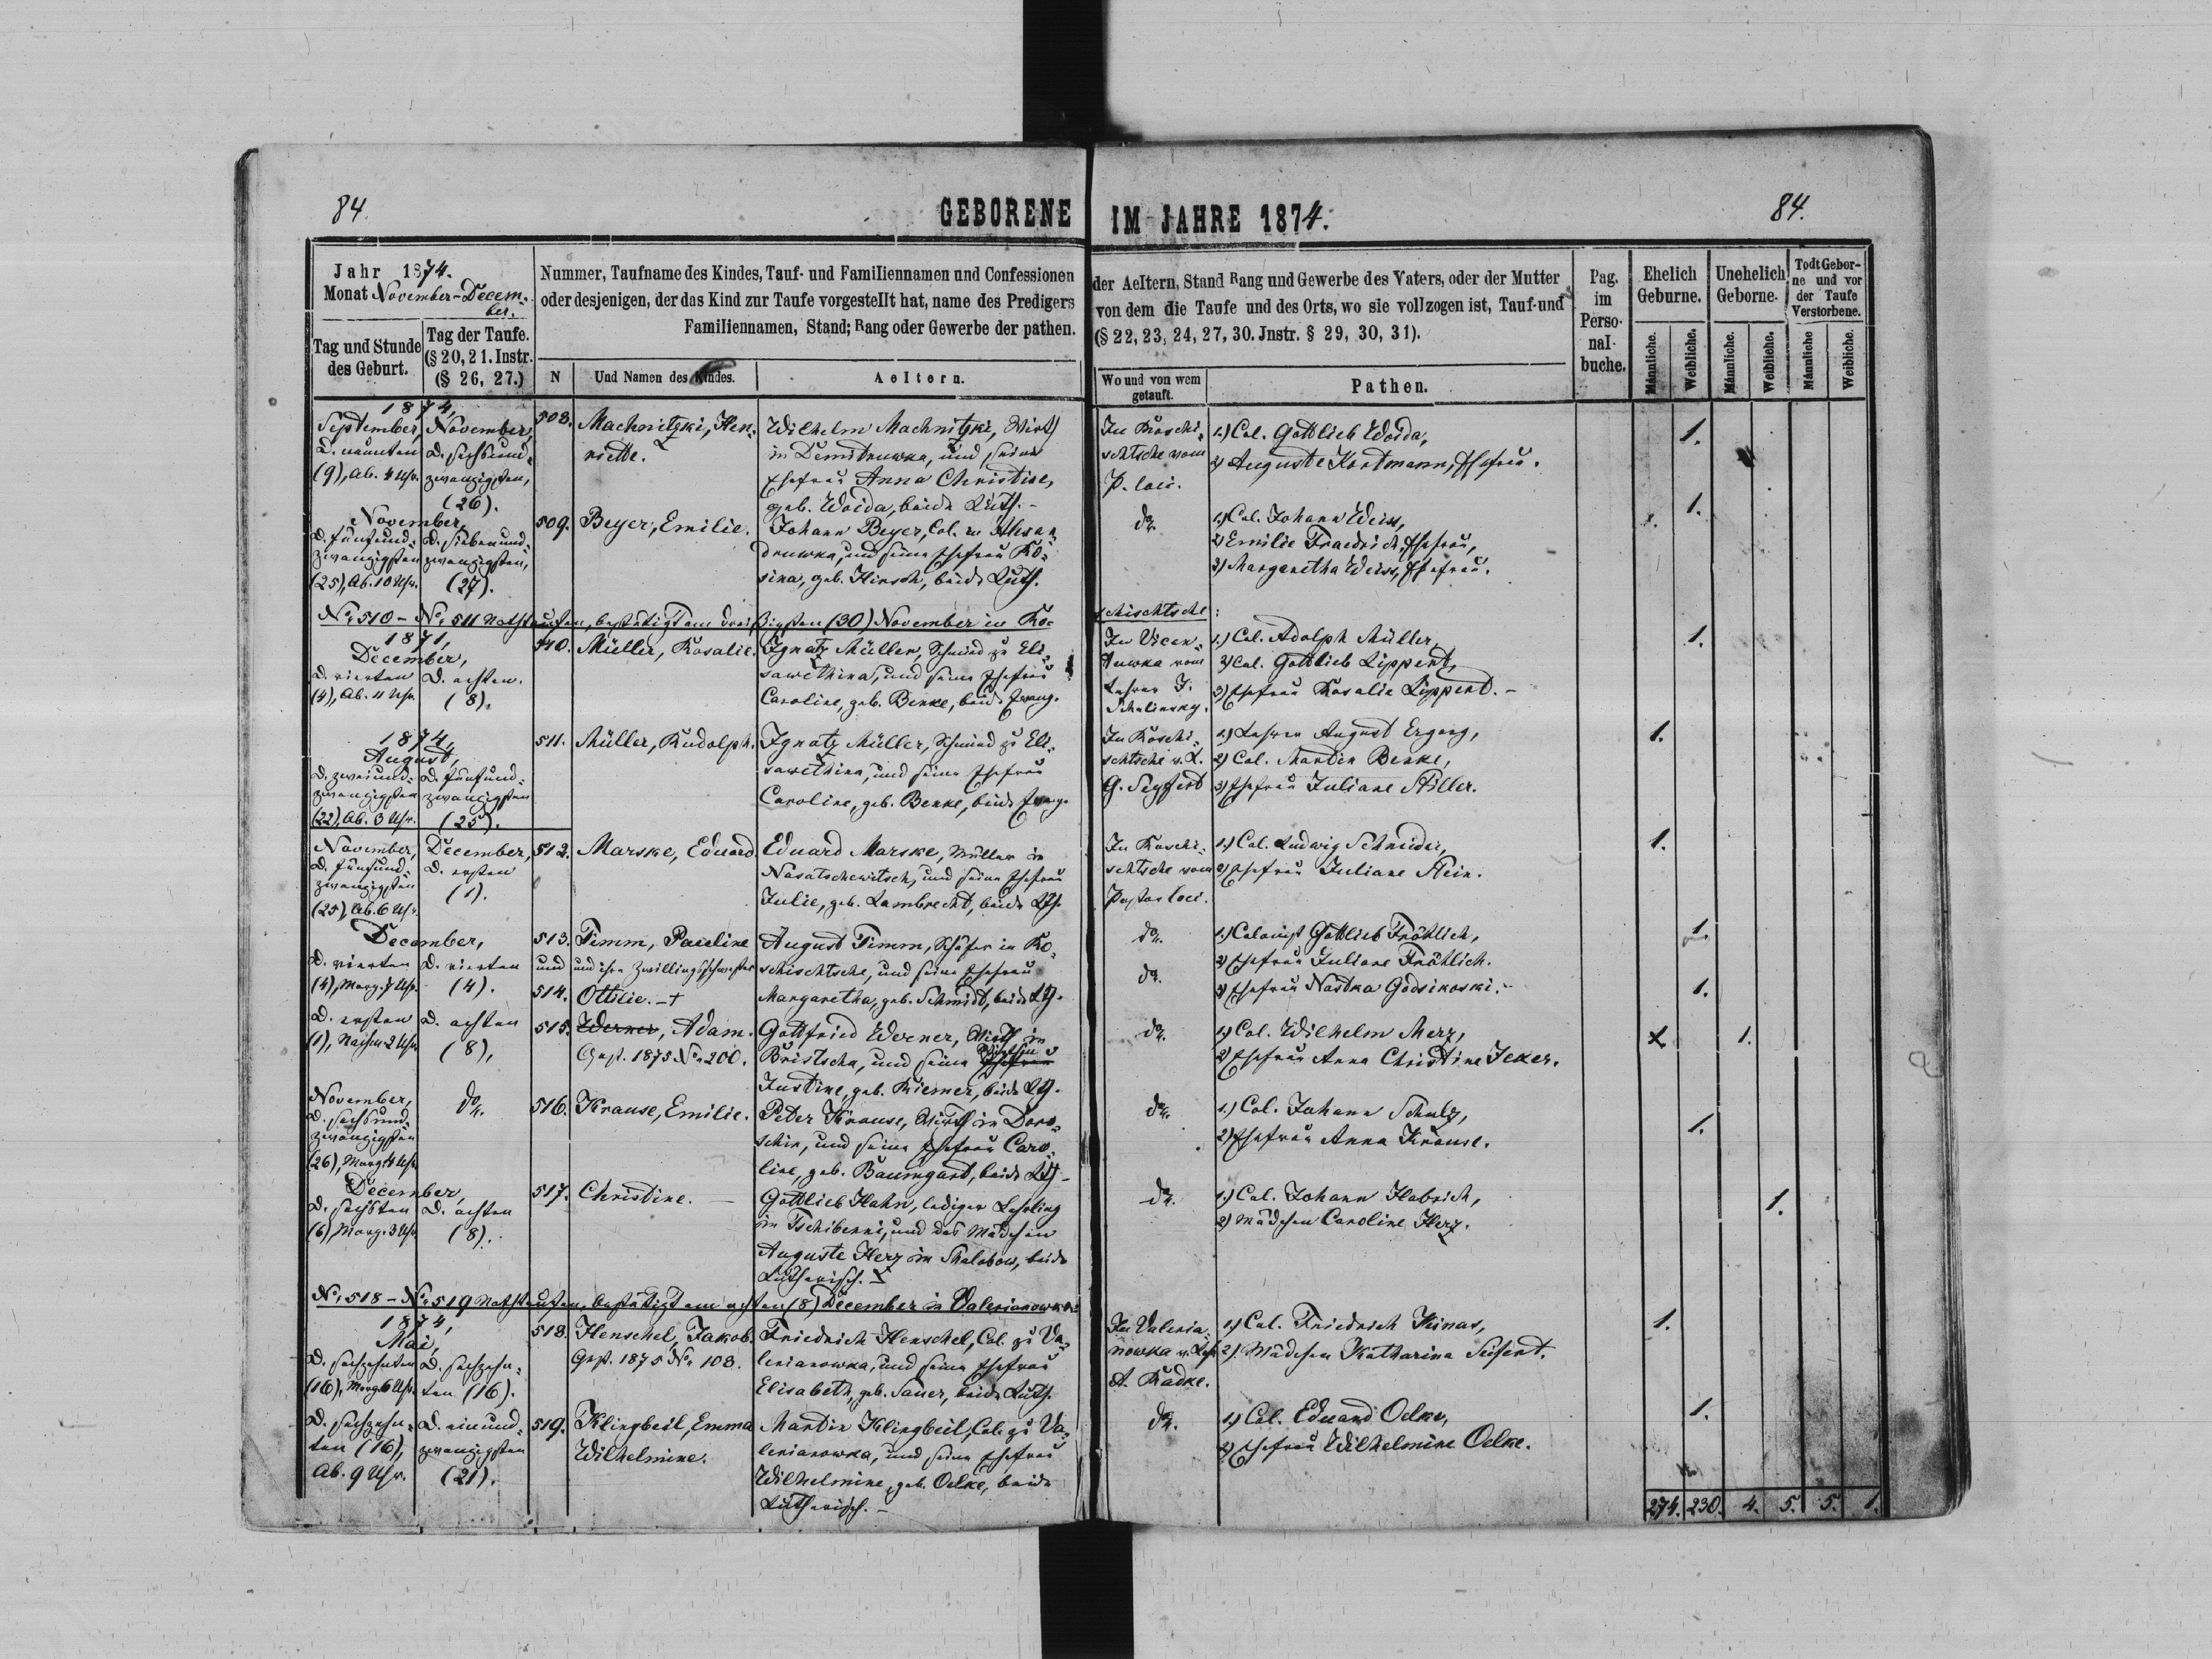 84.
GEBORENE IM JAHRE 1874.
84.
Jahr 1874.
Monat November-Decem-
ber.
Tag und Stunde
des Geburt.
Tag der Taufe.
(§ 20, 21. Instr.
(§ 26, 27.)
Nummer, Taufname des Kindes, Tauf- und Familiennamen und Confessionen
oder desjenigen, der das Kind zur Taufe vorgestellt hat, name des Predigers
Familiennamen, Stand; Rang oder Gewerbe der pathen.
N
Und Namen des Kindes.
Aeltern.
der Aeltern, Stand Rang und Gewerbe des Vaters, oder der Mutter
von dem die Taufe und des Orts, wo sie vollzogen ist, Tauf-und
(§ 22, 23, 24, 27, 30. Jnstr. § 29, 30, 31).
Wo und von wem
getauft.
Pathen.
Pag.
im
Perso-
nal-
buche.
Ehelich
Geburne.
Unehelich
Geborne.
Todt Gebor-
ne und vor
der Taufe
Verstorbene.
Männliche.
Weibliche.
Männliche.
Weibliche.
Männliche
Weibliche.
1874,
September,
D. neunten
(9), Ab. 4 Uhr.
November,
D. sechsund-
zwanzigsten,
(26).
508.
Machnitzki, Hen-
riette.
Wilhelm Machnitzki, Wirth
in Demitruwka, und seine
Ehefrau Anna Christine,
geb. Woida, beide Luth.-
In Koschi-
schtsche vom
P. loci.
1.) Col. Gottlieb Woida,
2) Auguste Kortmann, Ehefrau.
1.
November,
D. fünfund-
zwanzigsten
(25), Ab. 10 Uhr.
D. siebenund-
zwanzigsten,
(27).
509.
Beyer, Emilie.
Johann Beyer, Col. in Alexan-
druwka, und seine Ehefrau Ro-
sina, geb. Hirsch, beide Luth.
do.
1.) Col. Johann Weiss,
2) Emilie Fraedrich, Ehefrau,
3) Margaretha Weiss, Ehefrau.
1.
No. 510 - No. 511 Nothtaufen, bestätigt am dreißigsten (30) November in Ko-
schischtsche:
1871,
December,
D. vierten
(4), Ab. 11 Uhr.
D. achten.
(8).
510.
Müller, Rosalie.
Ignatz Müller, Schmied zu Eli-
sawethina, und seine Ehefrau
Caroline, geb. Benke, beide Evang.
In Vicen-
tuwka vom
Lehrer J.
1.) Col. Adolph Müller,
2) Col. Gottlieb Lippert,
3) Ehefrau Rosalie Lippert.-
1.
1874,
August,
D. zweiund-
zwanzigsten
(22), Ab. 3 Uhr.
D. fünfund-
zwanzigsten
(25).
511.
Müller, Rudolph.
Ignatz Müller, Schmied zu Eli-
sawethina, und seine Ehefrau
Caroline, geb. Benke, beide Evang.
In Koschi-
schtsche v. L.
G. Seyfert
1.) Lehrer August Ergang,
2) Col. Martin Benke,
3) Ehefrau Juliane Stiller.
1.
November,
D. fünfund-
zwanzigsten
(25), Ab. 6 Uhr.
December,
D. ersten
(1).
512.
Marske, Eduard
Eduard Marske, Müller in
Nasatschewitsch, und seine Ehefrau
Julie, geb. Lambrecht, beide Lth.
In Koschi-
schtsche vom
Pastor loci.
1.) Col. Ludwig Schneider,
2) Ehefrau Juliane Stein.
1.
December,
D. vierten
(4), Morg. 7 Uhr.
D. vierten
(4).
513.
und
514.
Timm, Pauline
und ihre Zwillingsschwester
Ottilie.-+
August Timm, Schäfer in Ko-
schischtsche, und seine Ehefrau
Margaretha, geb. Schmidt, beide Lth.
do.
do.
1.) Colonist Gottlieb Fröhlich,
2) Ehefrau Juliane Fröhlich.
3) Ehefrau Nastka Godsikoski.-
1.
1.
D. ersten
(1), Nachm. 2 Uhr
D. achten
(8),
515.
Werner, Adam.
Gest. 1875 No. 200.
Gottfried Werner, Wirth in
Bristscha, und seine Ehefrau
Justine, geb. Kriemer, beide Lth.
do.
1.) Col. Wilhelm Merz,
2) Ehefrau Anna Christine Jeker.
1.
November,
D. sechsund-
zwanzigsten
(26), Morg. 4 Uhr
do.
516.
Krause, Emilie.
Peter Krause, Wirth in Doro-
schin, und seine Ehefrau Caro-
line, geb. Baumgart, beide Lth.-
do.
1.) Col. Johann Schulz,
2) Ehefrau Anna Krause.
1.
December,
D. sechsten
(6), Morg. 3 Uhr
D. achten
(8).
517.
Christine. -
Gottlieb Hahn, lediger Lehrling
in Tschibenni, und das Mädchen
Auguste Herz in Shalobow, beide
Lutherisch.
do.
1.) Col. Johann Habrich,
2) Mädchen Caroline Herz.
1.
No. 518 - No. 519 Nothtaufen, bestätigt am achten (8) December in Valerianowka:
1874,
Mai,
D. sechzehnten
(16), Morg. 6 Uhr.
D. sechzehn-
ten (16).
518.
Henschel, Jakob.
Gest. 1875 No. 108.
Friedrich Henschel, Col. zu Va-
lerianowka, und seine Ehefrau
Elisabeth, geb. Sauer, beide Luth.
In Valeria-
nowka v. Lehr.
A. Radke.
1.) Col. Friedrich Kinas,
2). Mädchen Katharina Seifert.
1.
D. sechzehn-
ten (16),
Ab. 9 Uhr.
D. einund-
zwanzigsten
(21).
519.
Klingbeil, Emma
Wilhelmine.
Martin Klingbeil, Col. zu Va-
lerianowka, und seine Ehefrau
Wilhelmine, geb. Oelke, beide
Lutherisch.-
do.
1.) Col. Eduard Oelke,
2) Ehefrau Wilhelmine Oelke.
1.
274. 230. 4. 5. 5. 1.